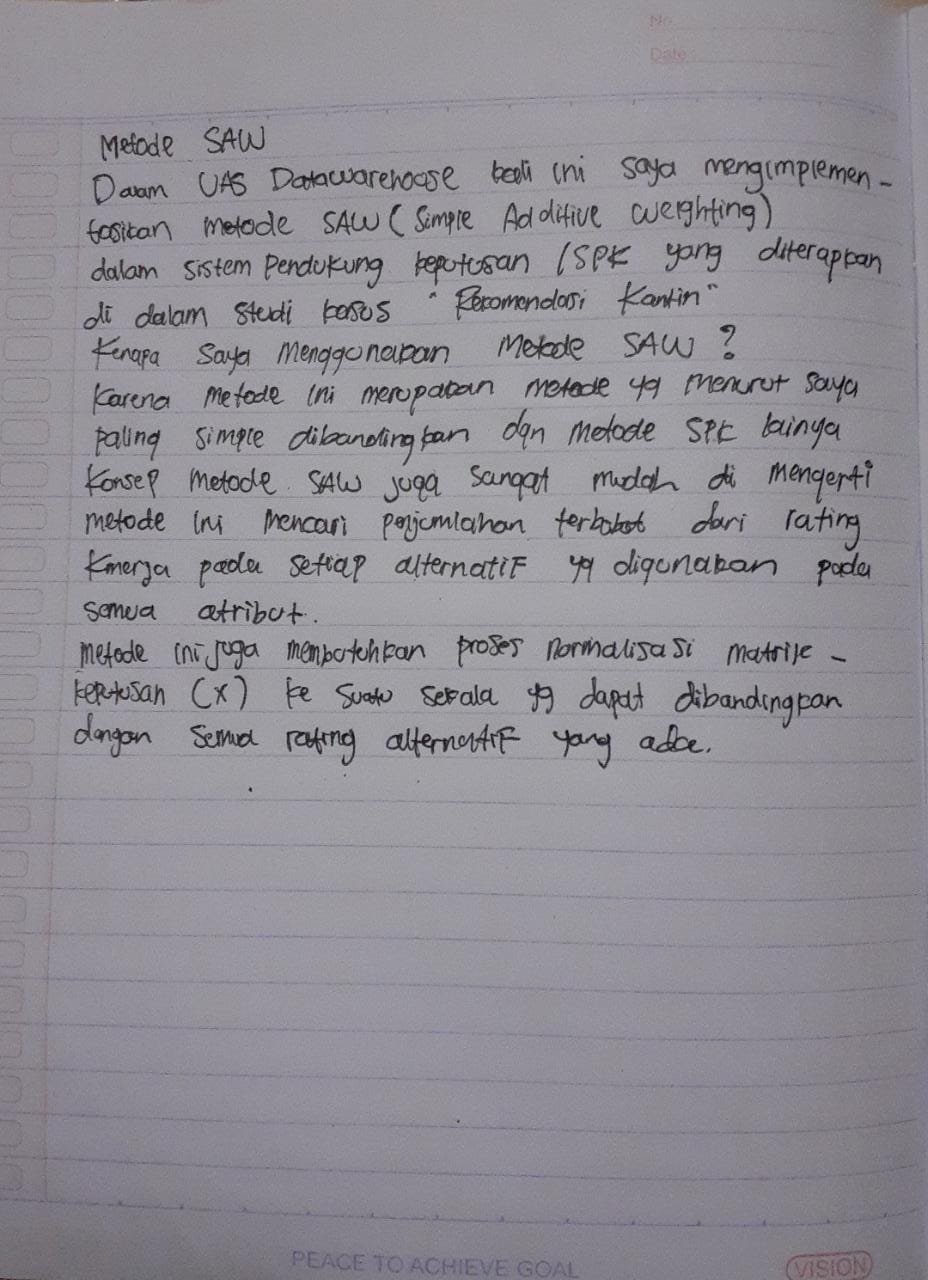 No
Date
Metode SAW
Dalam UAS Datawarehouse kali ini saya mengimplemen-
tasikan metode SAW (Simple Additive Weighting)
dalam sistem pendukung keputusan /SPK yang diterapkan
di dalam studi kasus "Rekomendasi Kantin"
Kenapa saya Menggunakan Metode SAW ?
Karena metode ini merupakan metode yg menurut saya
paling simple dibandingkan dgn Metode SPK lainya
Konsep metode SAW juga sangat mudah di mengerti
metode ini mencari penjumlahan terbobot dari rating
Kinerja pada setiap alternatif yg digunakan pada
semua atribut.
metode ini juga membutuhkan proses normalisasi matrik -
keputusan (x) ke suatu sekala yg dapat dibandingkan
dengan semua rating alternatif yang ada.
PEACE TO ACHIEVE GOAL
VISION